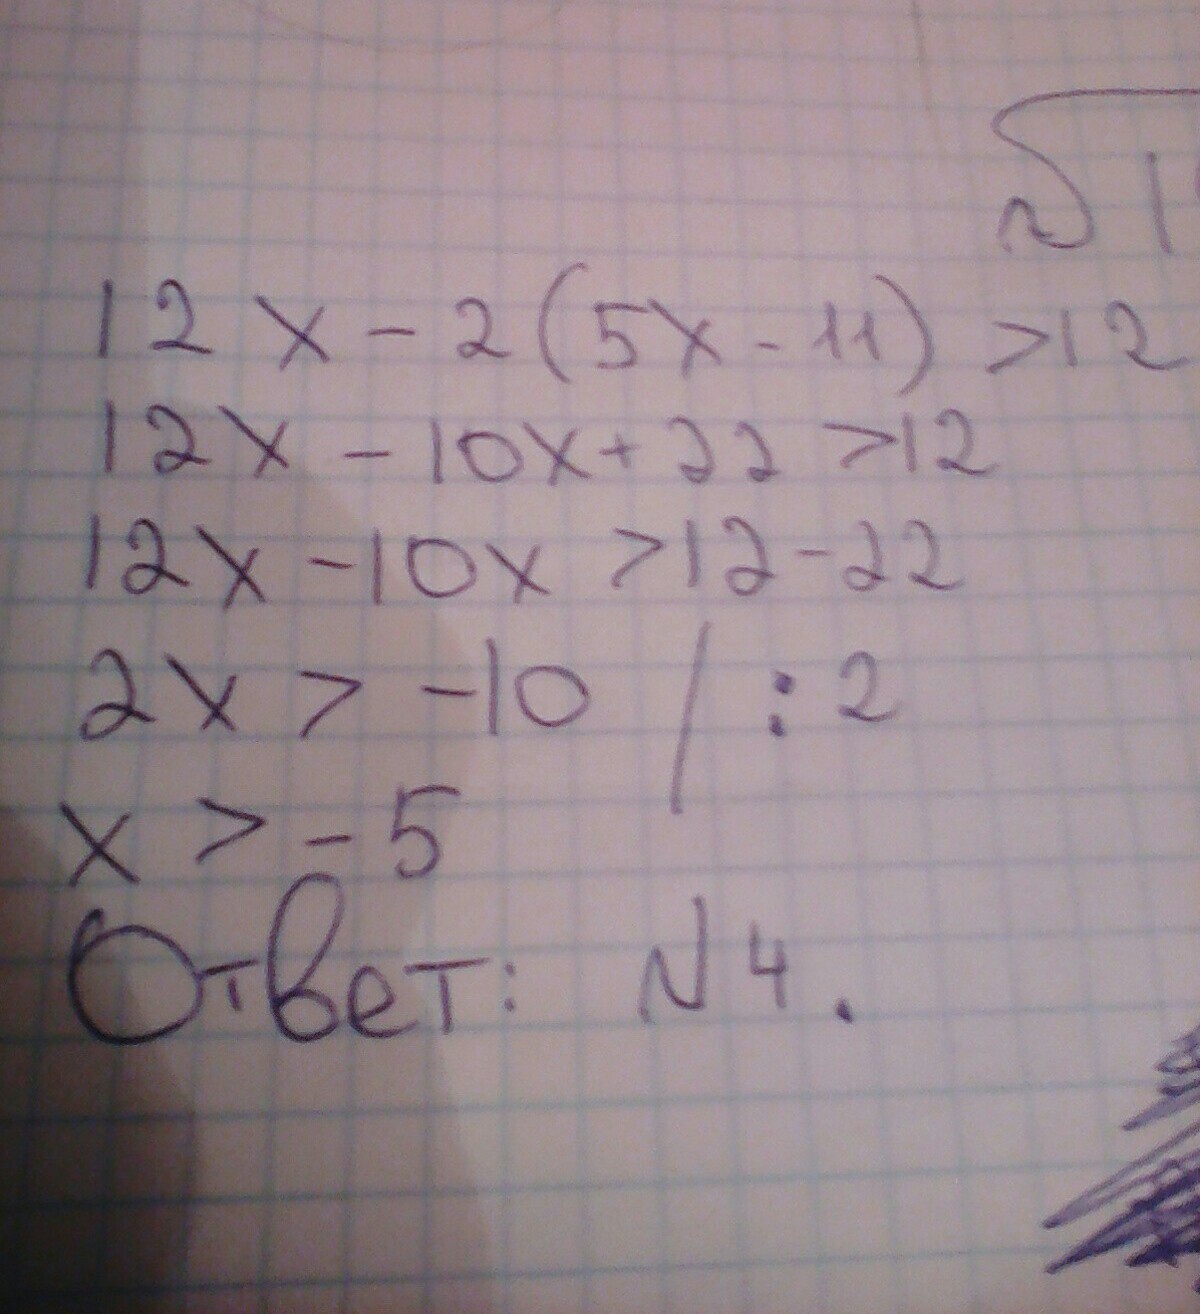 12x - 2(5x - 11) > 12
12x - 10x + 22 > 12
12x - 10x > 12 - 22
2x > -10 / : 2
x > -5
Ответ: N4.